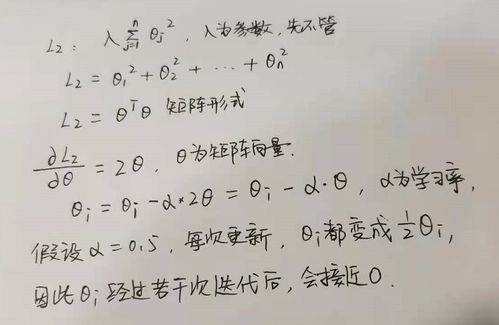 L₂: λ∑ⱼ₌₁ⁿ θⱼ², λ为参数,先不管
L₂ = θ₁² + θ₂² + … + θₙ²
L₂ = θᵀθ 矩阵形式
∂L₂/∂θ = 2θ, θ为矩阵向量.
θᵢ = θᵢ - α*2θ = θᵢ - α·θ, α为学习率,
假设α=0.5, 每次更新, θᵢ都变成½θᵢ,
因此θᵢ经过若干次迭代后,会接近0.